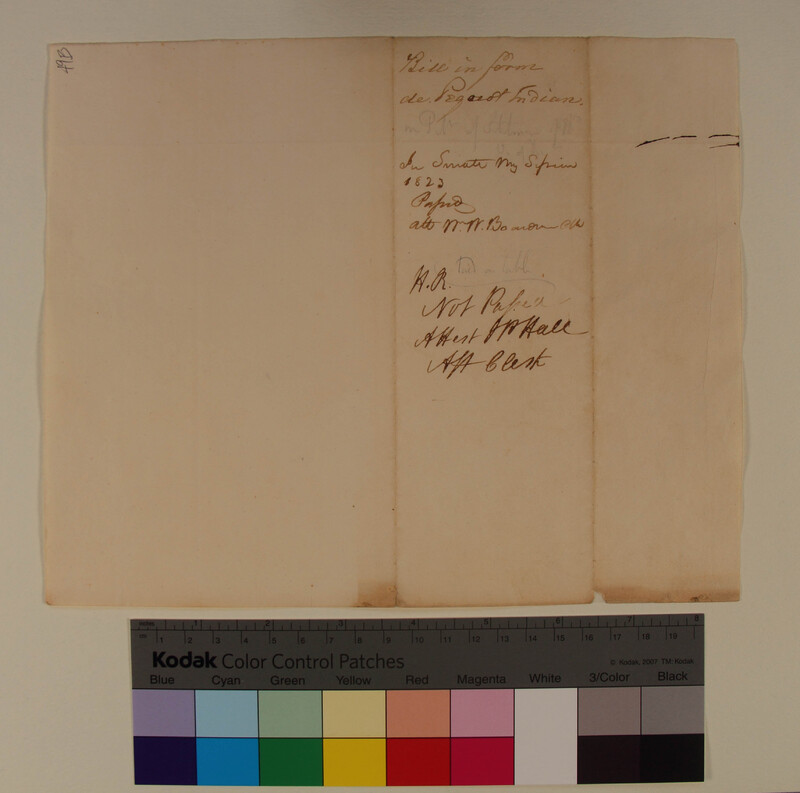 49B
Bill in form
de. Pequot Indian.
on Pt.
In Senate May Session
1823
Passed
att W. W. Boardman Clk
H. R.
Not Passed
Attest J P Hall
Asst Clerk
inches 1 2 3 4 5 6 7 8
cm 1 2 3 4 5 6 7 8 9 10 11 12 13 14 15 16 17 18 19
Kodak Color Control Patches
© Kodak, 2007 TM: Kodak
Blue Cyan Green Yellow Red Magenta White 3/Color Black